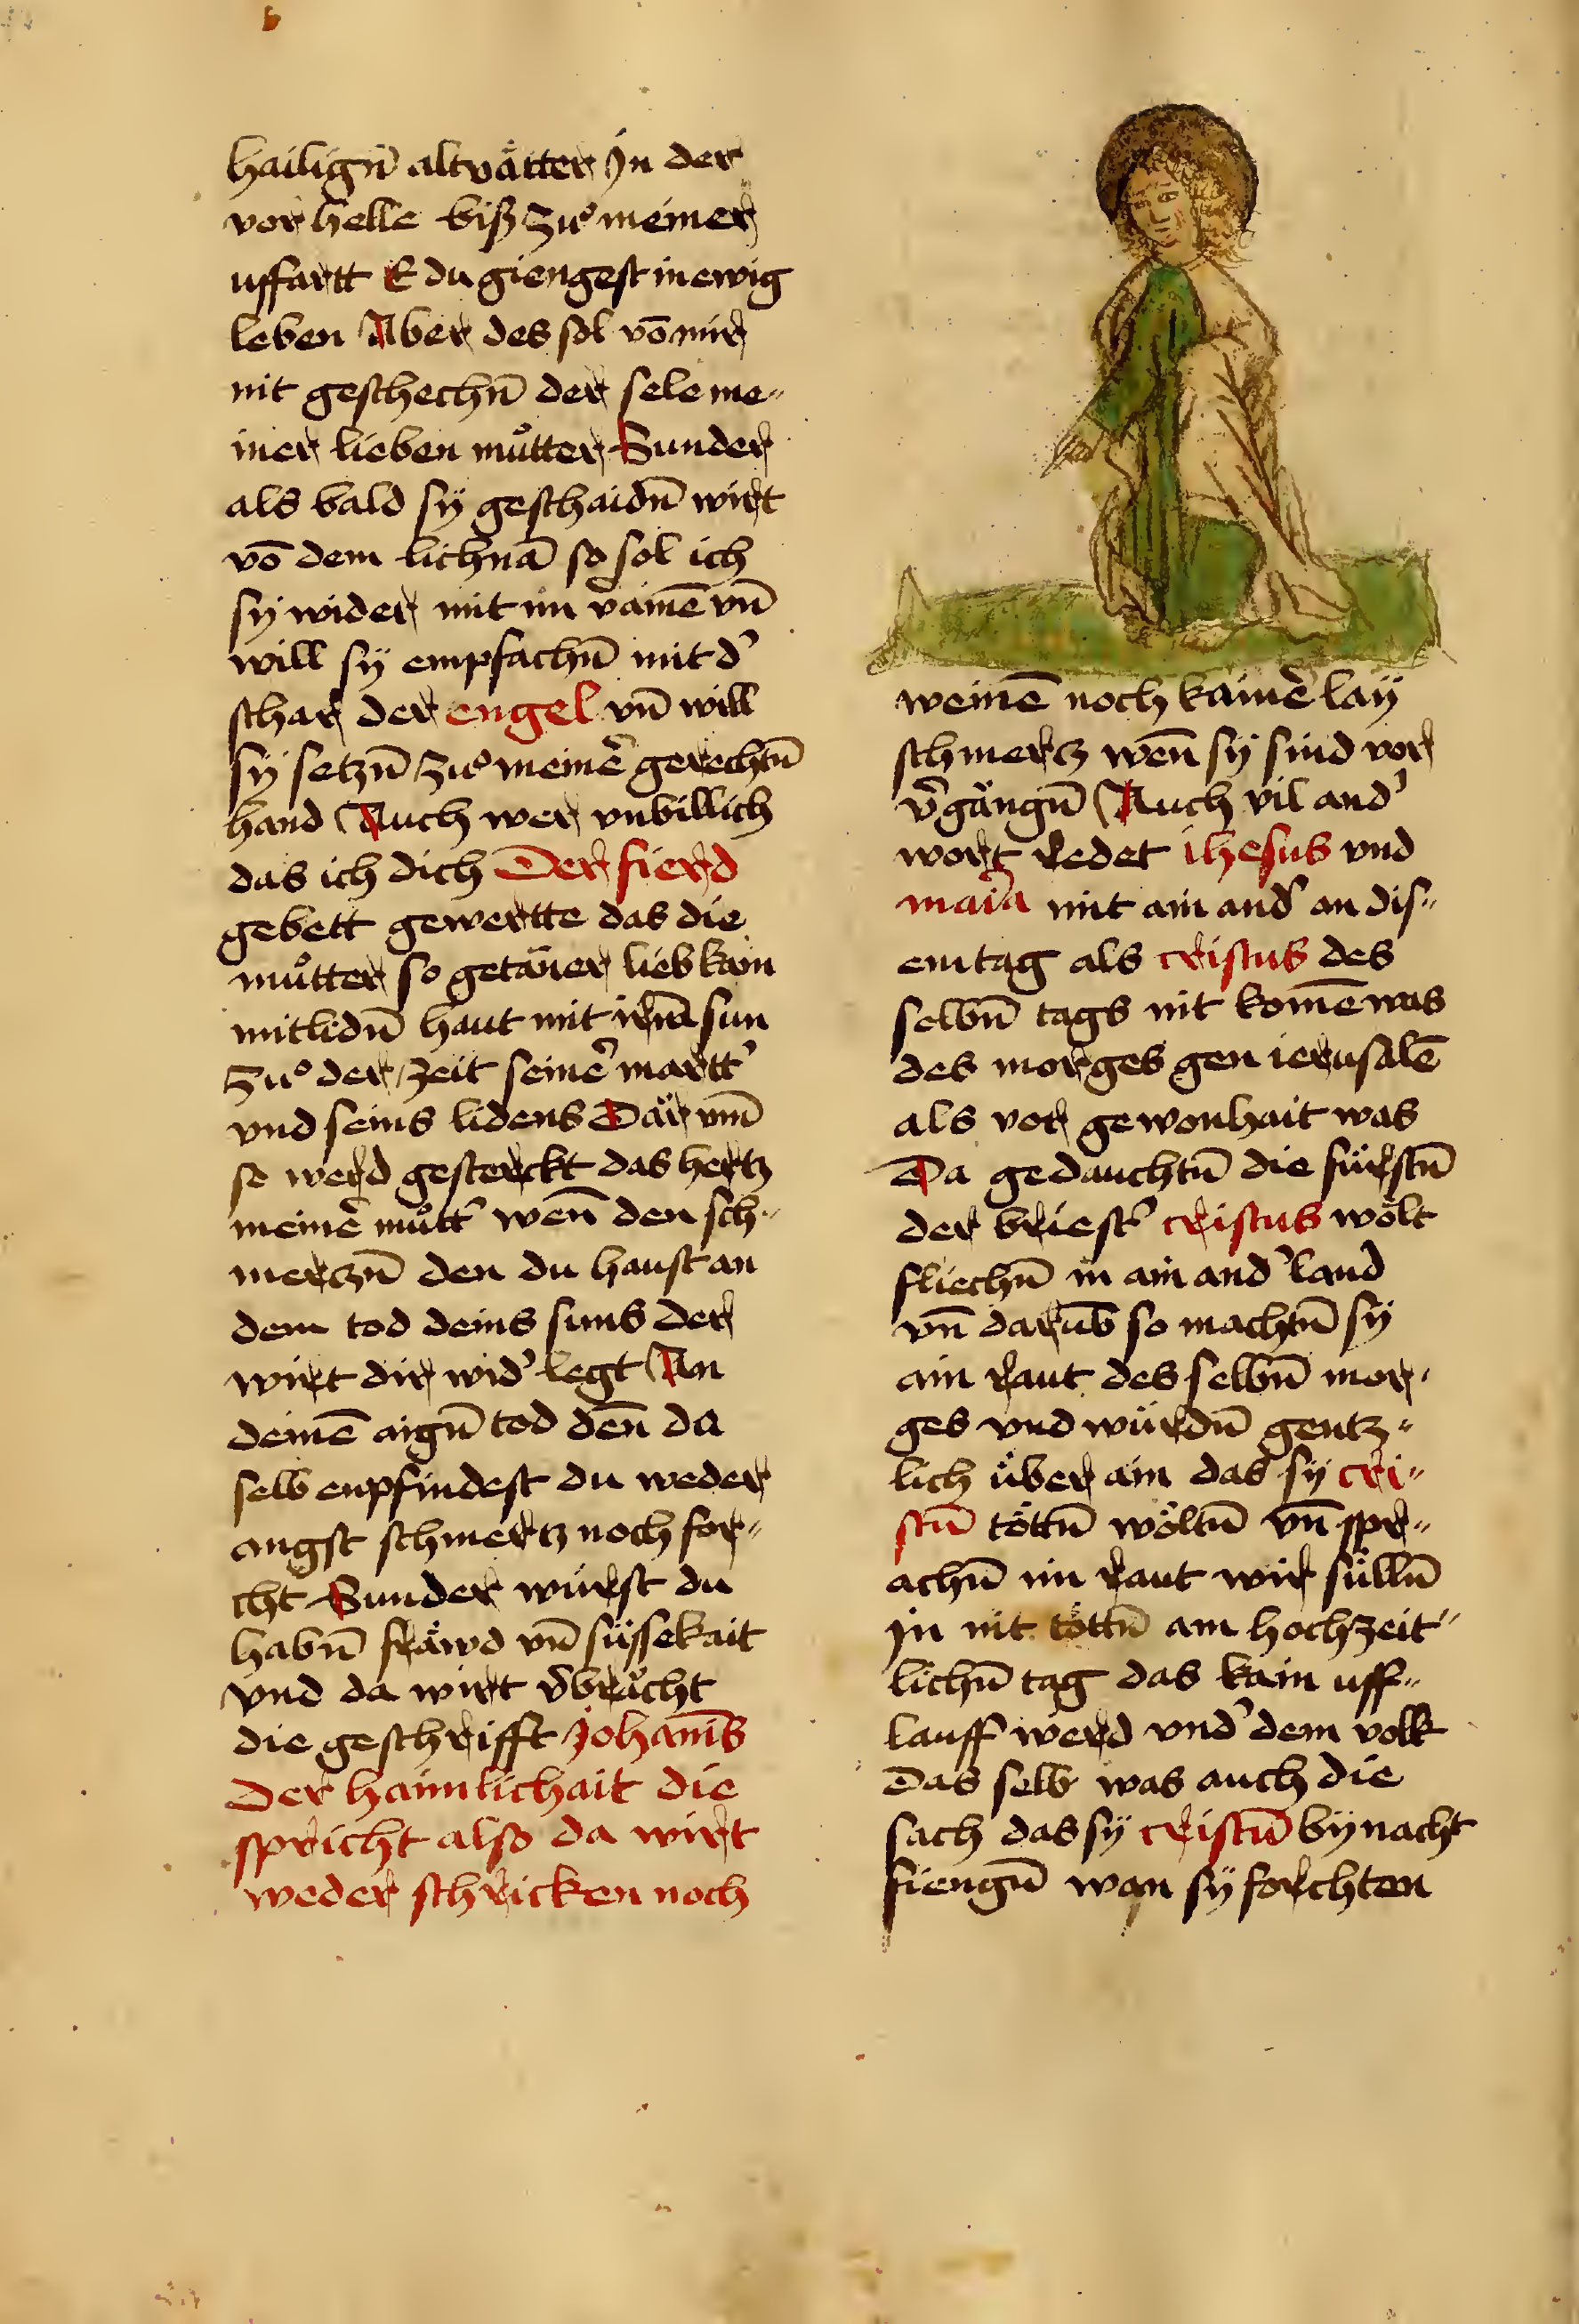 hailign̄ altvätter Jn der
vor helle biß zuͦ meiner
uffartt E du giengest in ewig
leben Aber des sol vō mir
nit geschechn̄ der sele me〃
iner lieben muͦtter Sunder
als bald sÿ geschaidn̄ wirt
vō dem lichnā so sol ich
sÿ wider mit im vaīnē vn̄
will sÿ empfachn̄ mit d’
schar der engel vn̄ will
sÿ setzn̄ zuͦ meine͛ gerechtn̄
hand Auch wer vnbillich
das ich dich Der fierd
gebett gewertte das die
muͦtter so getäner lieb kain
mitlidn̄ haut mit irm̄ sun
zuͦ der zeit seine͛ martt’
vnd seins lidens Där vm̄
so werd gesterckt das hertz
meine͛ muͦtt’ wen̄ den sch〃
merczn̄ den du haust an
dem tod deins suns Der
wirt dir wid’ legt An
deinē aign̄ tod den̄ da
selb enpfindest du weder
angst schmertz noch for〃
cht Sunder würst du
habn̄ fräwd vn̄ süssekait
vnd da wirt v͛brächt
die geschrifft Johan̄is
Der haimlichait die
spricht also da wirt
weder schricken noch
weinē noch kaine͛ laÿ
schmertz wen̄ sÿ sind vor
v͛gängn̄ Auch vil and’
wort redet ihesus vnd
maīa mit ain and’ an dis〃
em tag als cristus des
selbn̄ tags nit komē was
des morges gen ierusalē
als vor gewonhait was
Da gedauchtn̄ die fürstn̄
der briest’ cristus wölt
fliechn̄ in ain and’ land
vn̄ darūb so machtn̄ sÿ
ain raut des selbn̄ mor〃
ges vnd würdn̄ gentz〃
lich über ain das sÿ cri〃
stū töttn̄ wöltn̄ vn̄ spr〃
achn̄ im raut wir sülln̄
Jn nit töttn̄ am hochzeit〃
lichn̄ tag das kain uff〃
lauff werd vnd’ dem volk
Das selb was auch die
sach das sÿ cristū bÿ nacht
fiengn̄ wan sÿ forchten